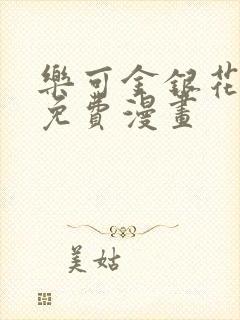 樂可金銀花
免費漫畫
美姑